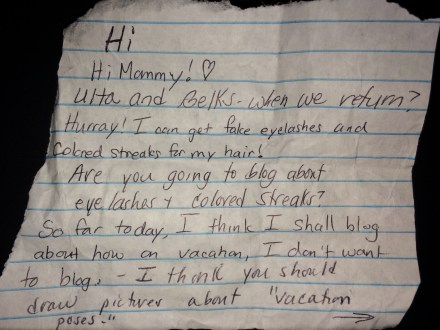 Hi
Hi Mommy! ♡
Ulta and Belks - when we return?
Hurray! I can get fake eyelashes and
Colored streaks for my hair!
Are you going to blog about
eyelashes + colored streaks?
So far today, I think I shall blog
about how on vacation, I don't want
to blog. - I think you should
draw pictures about "vacation
poses!"
→